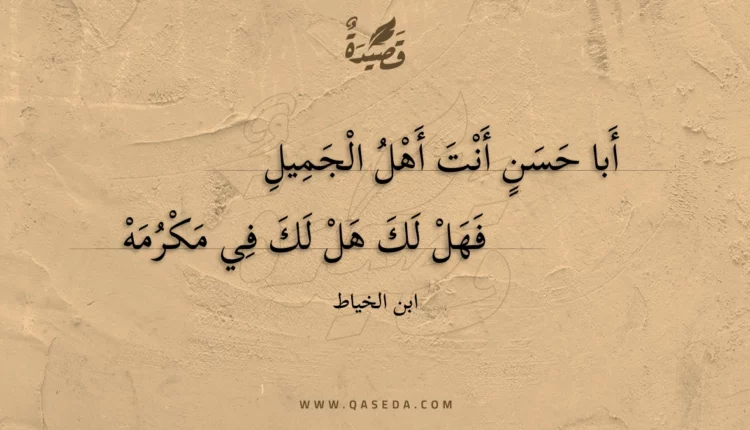 قَصِيْدَةٌ
أَبا حَسَنٍ أَنْتَ أَهْلُ الْجَمِيلِ
فَهَلْ لَكَ هَلْ لَكَ فِي مَكْرُمَهْ
ابن الخياط
WWW.QASEDA.COM